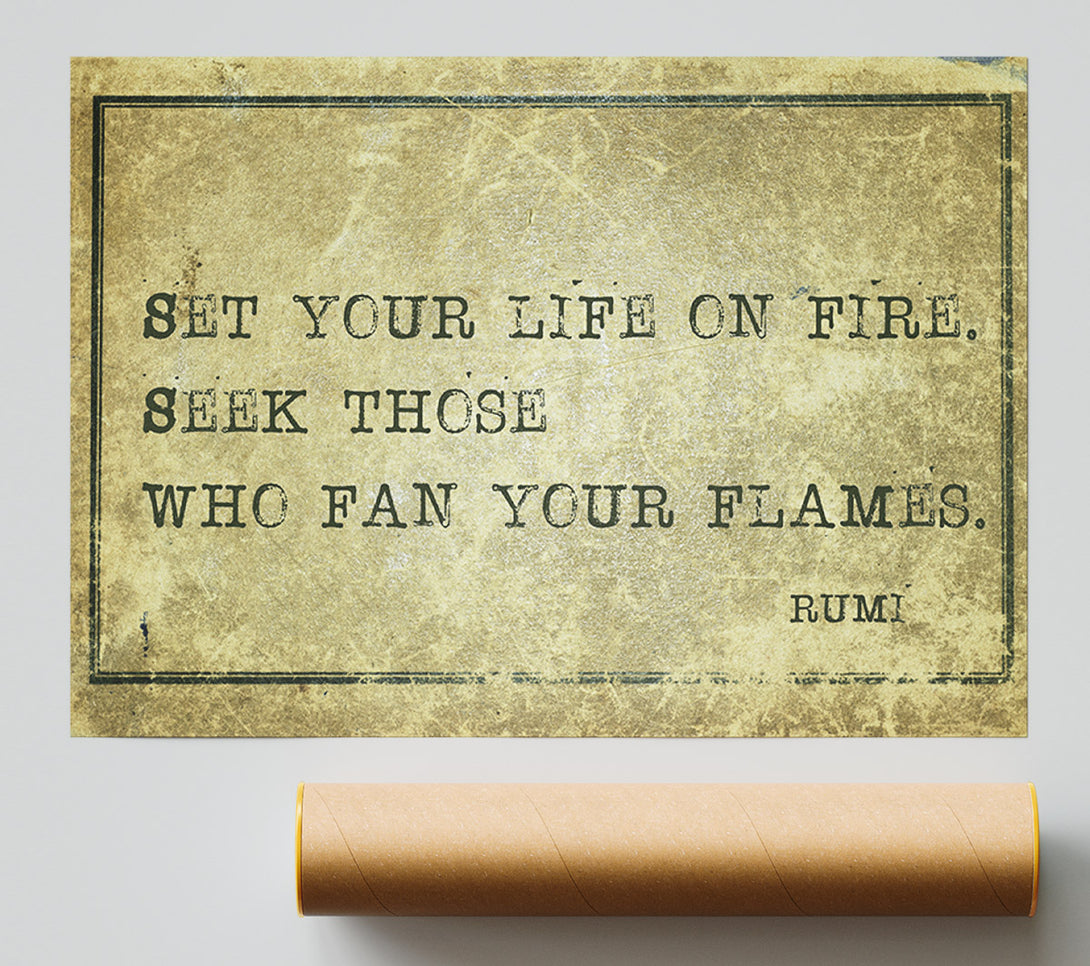 SET YOUR LIFE ON FIRE.
SEEK THOSE
WHO FAN YOUR FLAMES.
RUMI